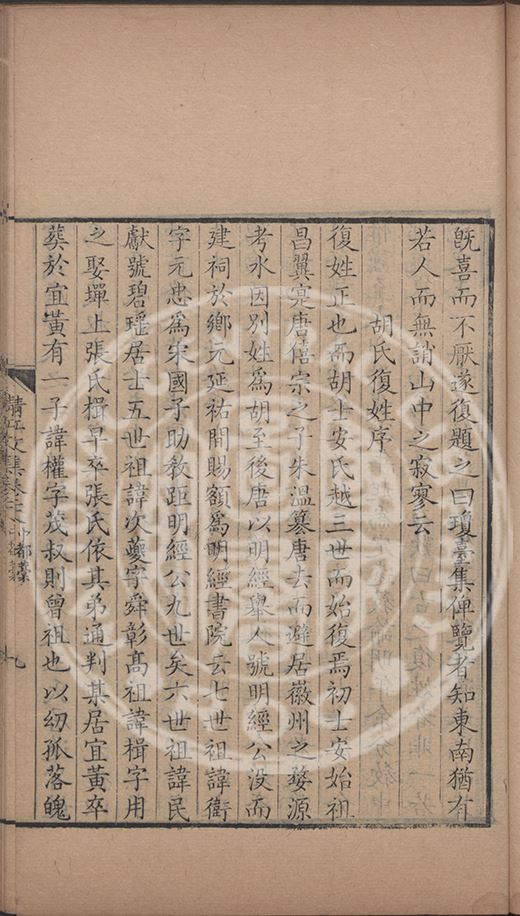 既喜而不厭遂復題之曰瓊臺集俾覽者知東南猶有
若人而無誚山中之寂寥云
胡氏復姓序
復姓正也而胡士安氏越三世而始復焉初士安始祖
昌翼寔唐僖宗之子朱溫簒唐去而避居徽州之婺源
考水因别姓爲胡至後唐以明經舉人號明經公没而
建祠於鄉元延祐間賜額爲明經書院云七世祖諱衛
字元忠爲宋國子助敎距明經公九世矣六世祖諱民
獻號碧瑶居士五世祖諱次夔字舜彰髙祖諱楫字用
之娶蟬上張氏楫早卒張氏依其弟通判某居宜黄卒
葬於宜黄有一子諱權字茂叔則曾祖也以幼孤落魄
清江文集卷
九